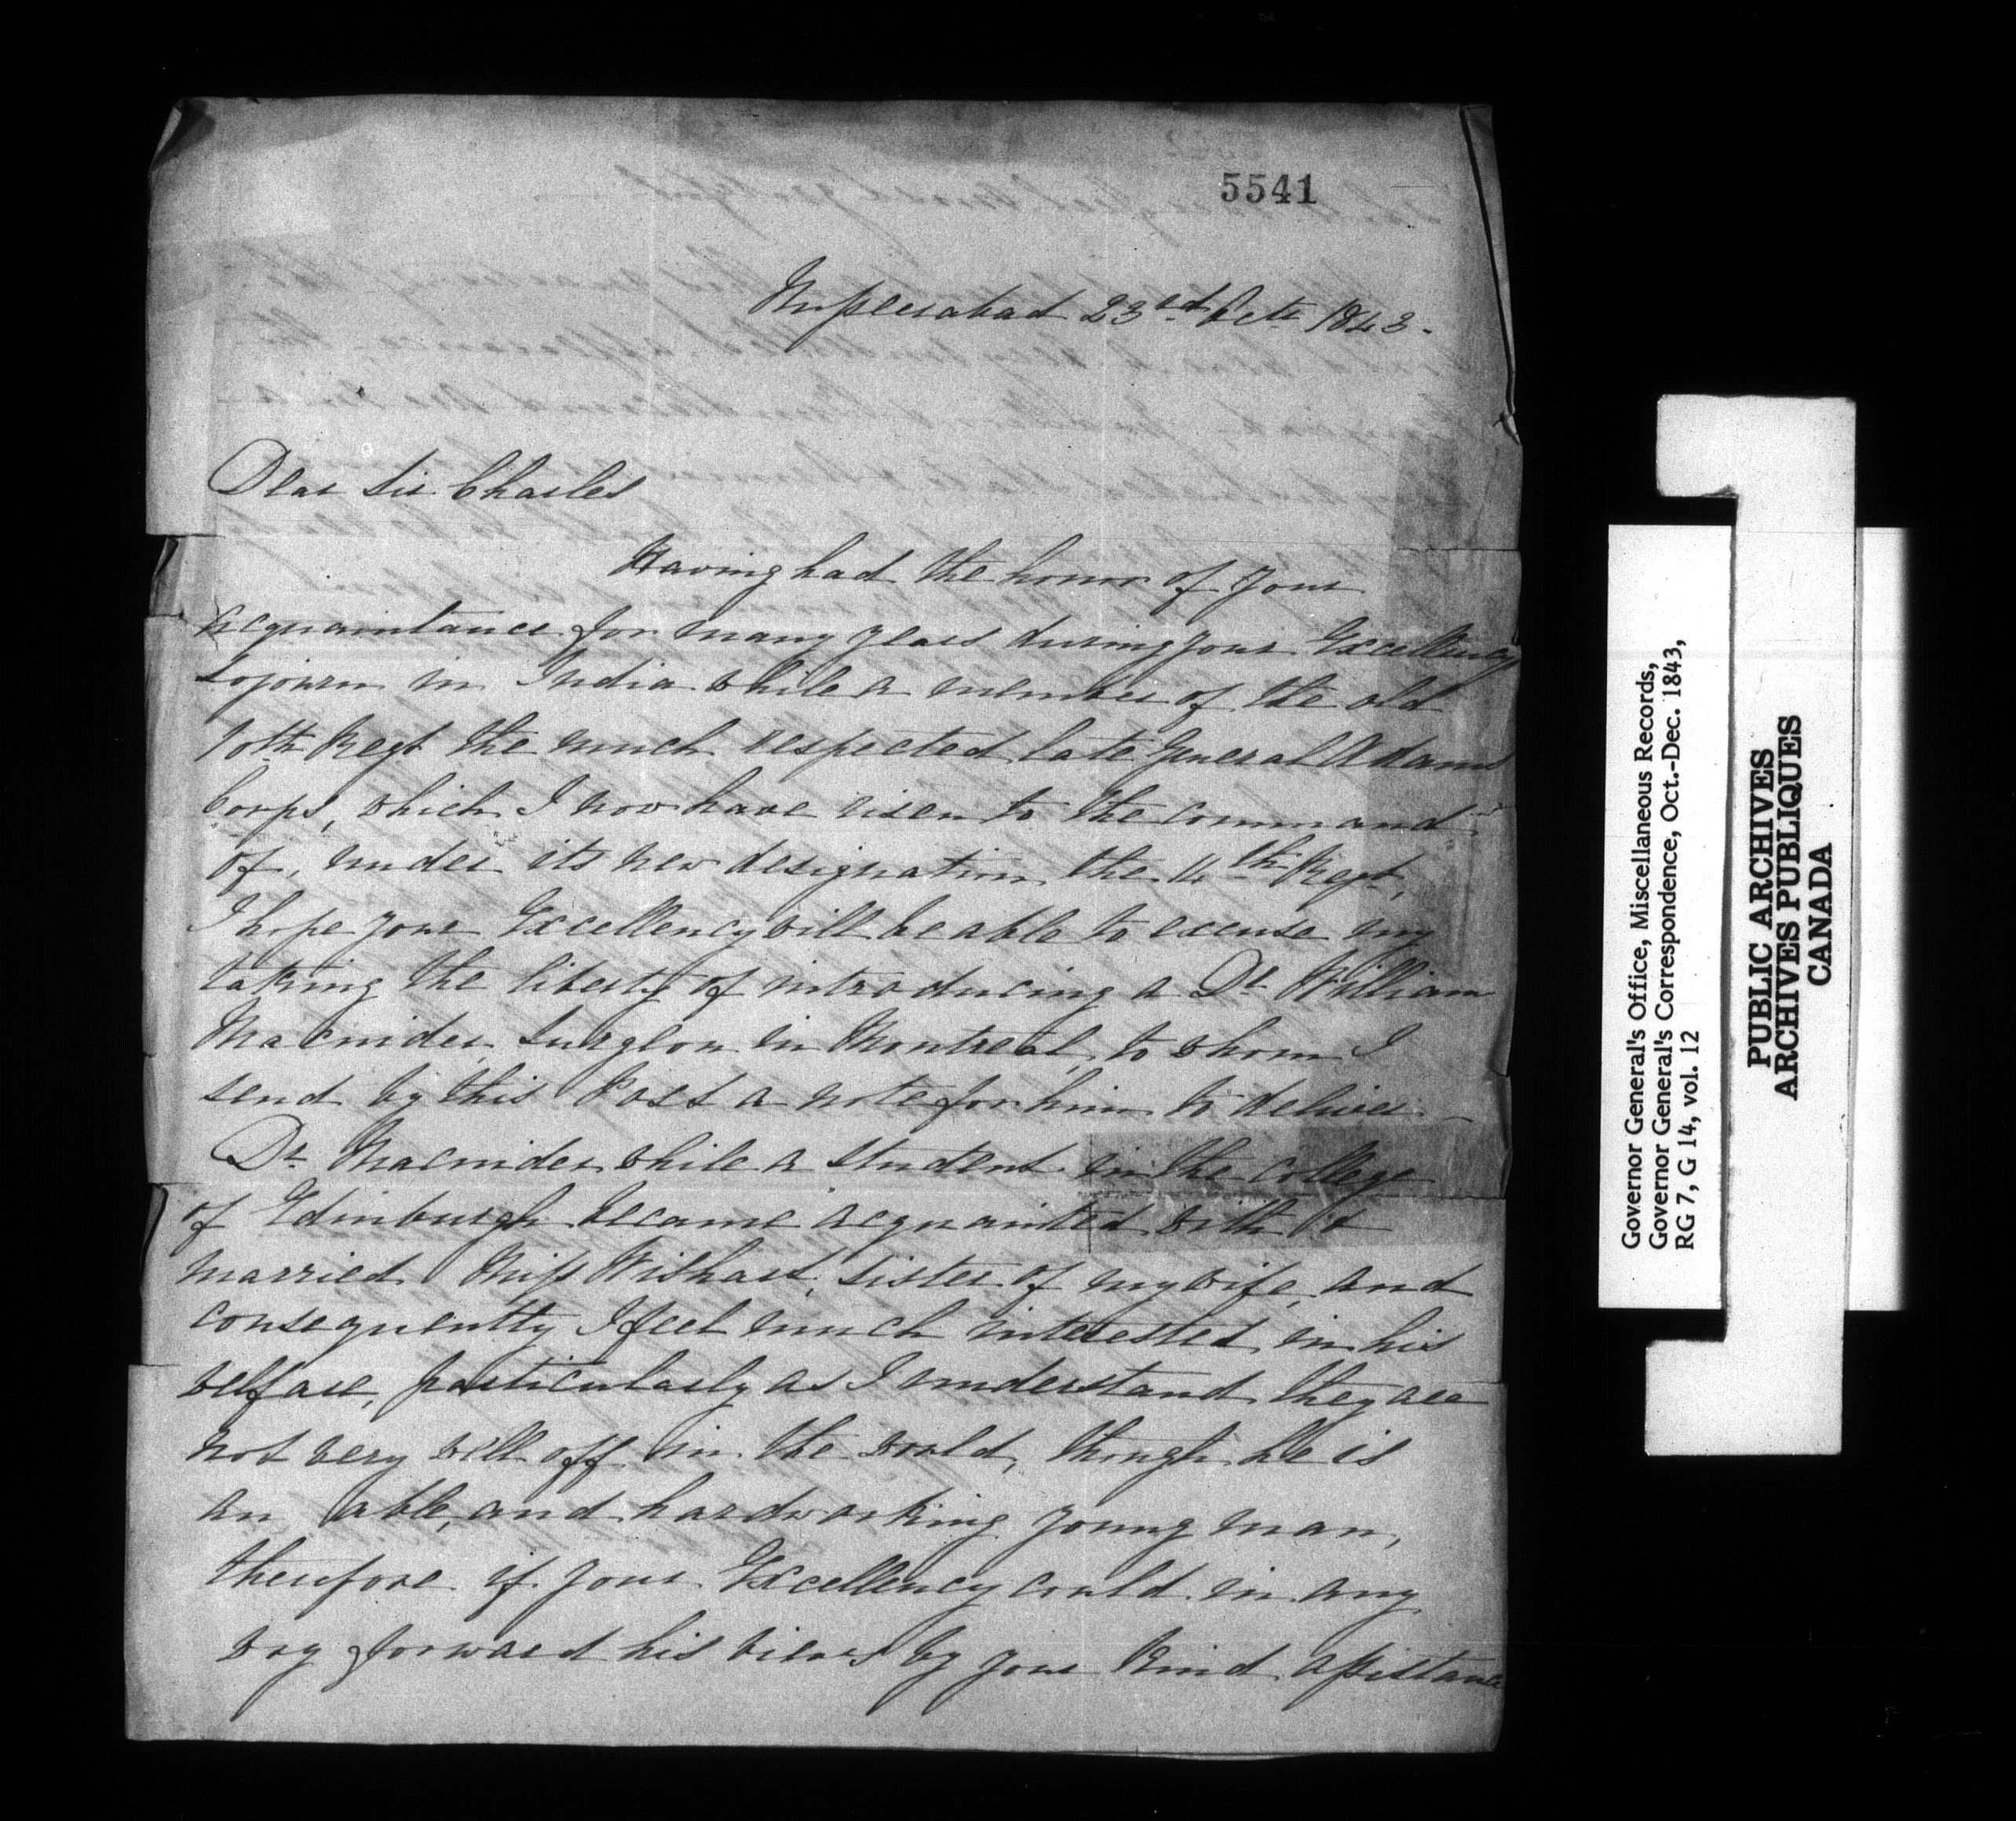 5541
Nusseerabad 23rd Octr 1843.
Dear Sir Charles
Having had the honor of your
acquaintance for many years during your Excellency
sojourn in India while a member of the old
10th Regt the much respected late General Adams
Corps, which I now have risen to the command
of, under its new designation the 14th Regt,
I hope your Excellency will be able to excuse my
taking the liberty of introducing a Dr William
Macnider Surgeon in Montreal, to whom I
send by this Post a note for him to deliver.
Dr Macnider while a student in the college
of Edinburgh became acquainted with &
married Miss Wishart, sister of my wife, and
consequently I feel much interested in his
welfare, particularly as I understand they are
not very well off in the world, though he is
an able, and hardworking young man,
therefore if your Excellency could in any
way forward his views by your kind assistance
Governor General's Office, Miscellaneous Records,
Governor General's Correspondence, Oct.-Dec. 1843,
RG 7, G 14, vol. 12
PUBLIC ARCHIVES
ARCHIVES PUBLIQUES
CANADA